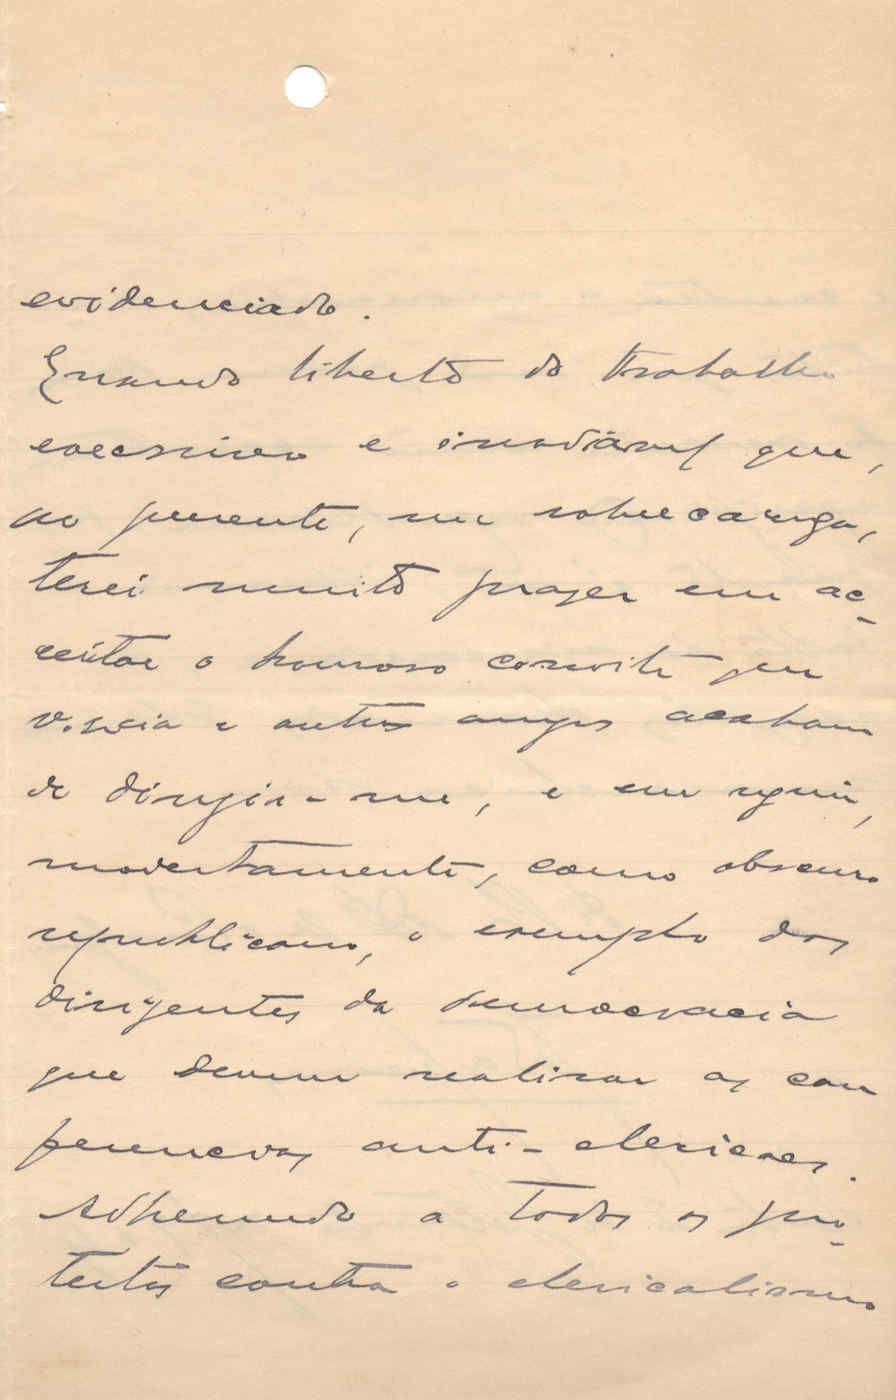 evidenciado.
Quando liberto do trabalho
excessivo e inadiavel que,
ao presente, me sobrecarrega,
terei muito prazer em ac-
ceitar o honroso convite que
v. excia e outros amigos acabam
de dirigir-me, e em seguir,
modestamente, como obscuro
republicano, o exemplo dos
dirigentes da democracia
que devem realisar as con
ferencias anti-clericaes.
Adherindo a todos os pro-
testos contra o clericalismo